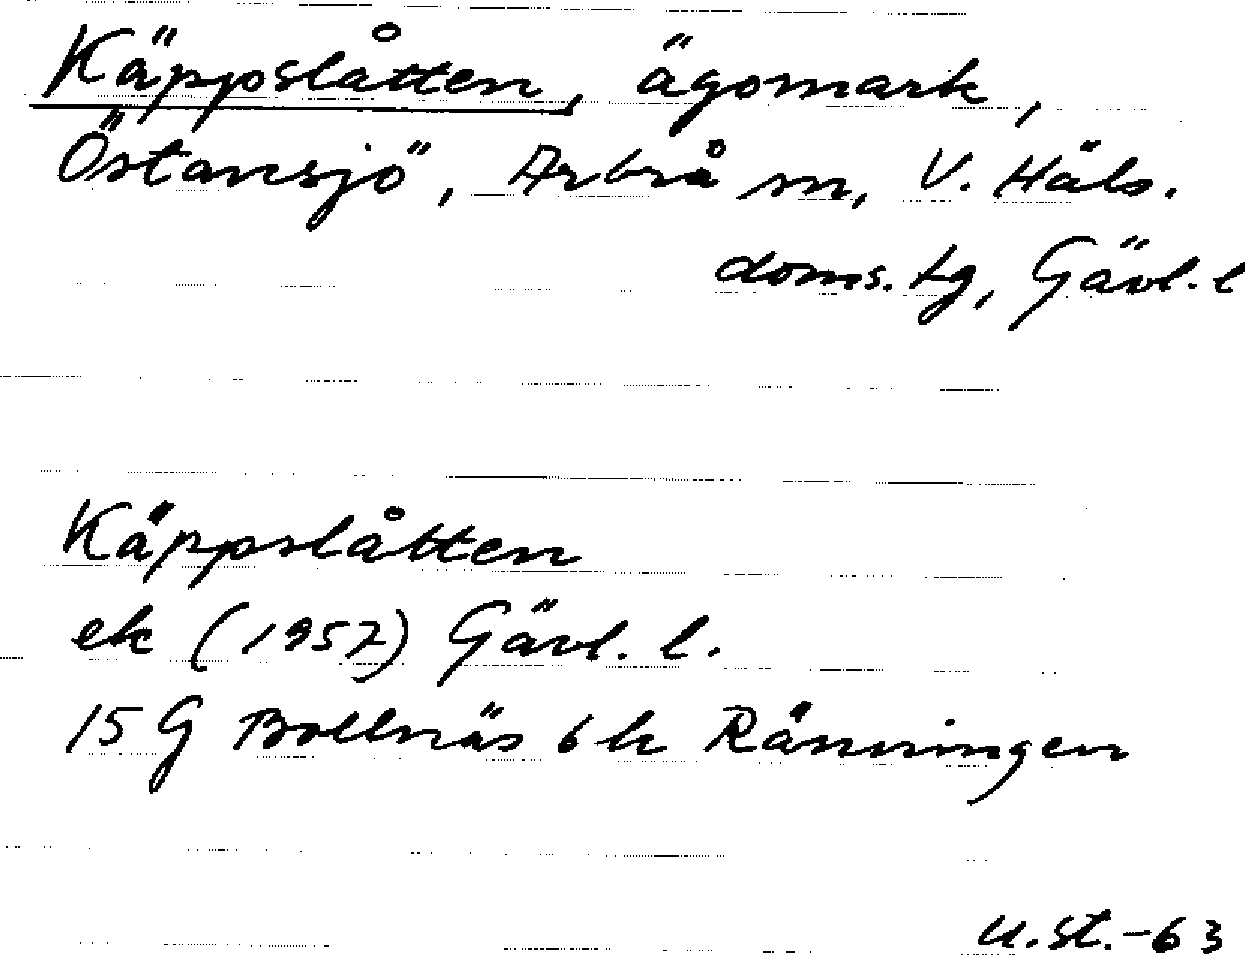 Käppslåtten, ägomark,
Östansjö, Arbrå sn, V. Häls.
doms. tg, Gävl. l
Käppslåtten
ek (1957) Gävl. l.
15 G Bollnäs 6 h Rånningen
U.St.-63